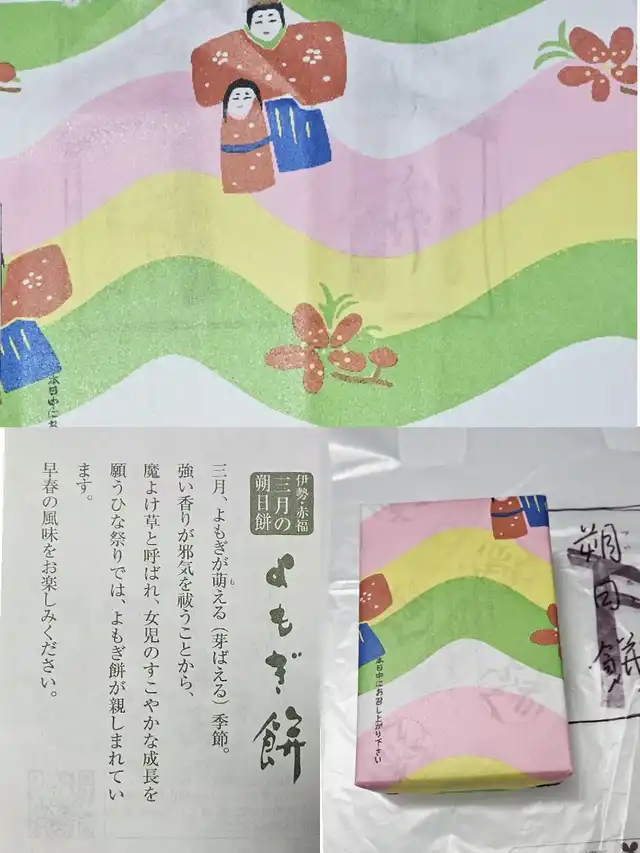 本日中にお
伊勢・赤福
三月の
朔日餅
よもぎ餅
三月、よもぎが萌える（芽ばえる）季節。
も
強い香りが邪気を祓うことから、
魔よけ草と呼ばれ、女児のすこやかな成長を
願うひな祭りでは、よもぎ餅が親しまれてい
ます。
早春の風味をお楽しみください。
本日中にお召し上がり下さい
朔日餅